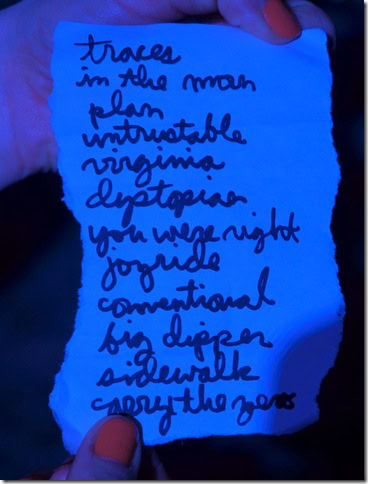 traces
in the man
plan
untrustable
virginia
dystopian
you were right
joyride
conventional
big dipper
sidewalk
carry the zero